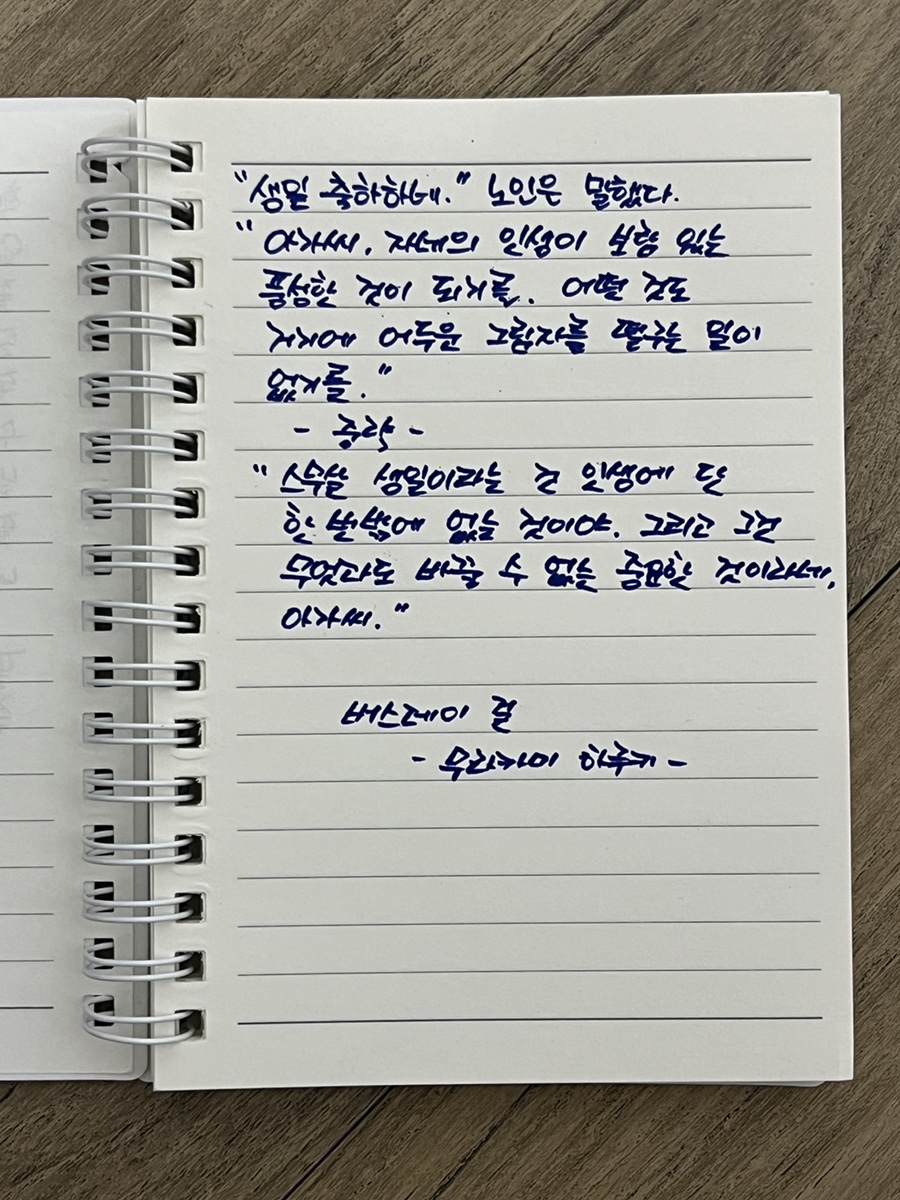 "생일 축하하네." 노인은 말했다.
"아가씨. 자네의 인생이 보람 있는
풍성한 것이 되기를. 어떤 것도
거기에 어두운 그림자를 떨구는 일이
없기를."
- 중략 -
"스무살 생일이라는 건 인생에 단
한 번밖에 없는 것이야. 그리고 그건
무엇과도 바꿀 수 없는 중요한 것이라네,
아가씨."
버스데이 걸
- 무라카미 하루키 -